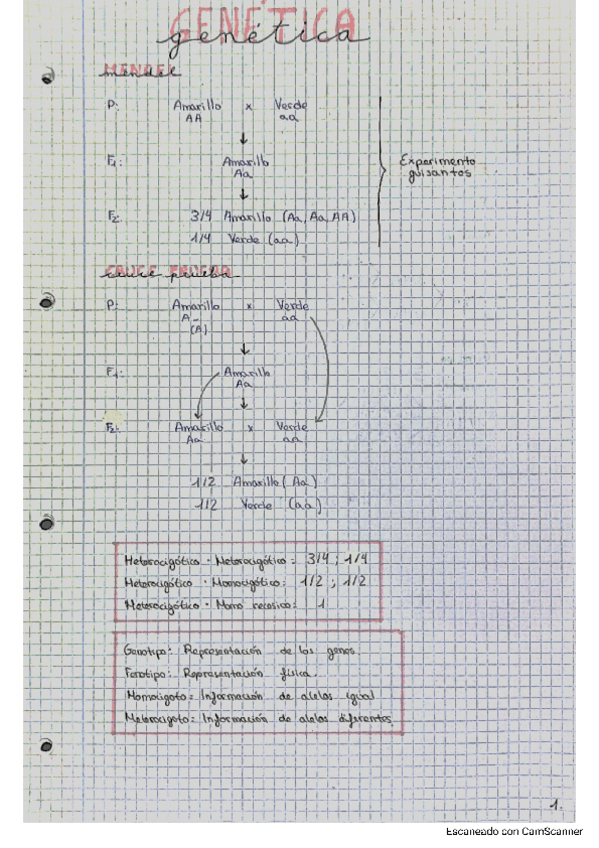 GENÉTICA
genética
MENDEL
mendel
P: Amarillo x Verde
AA aa
F₁: Amarillo
Aa
Experimento
guisantes
F₂: 3/4 Amarillo (Aa, Aa, AA)
1/4 Verde (aa)
CRUCE PRUEBA
cruce prueba
P: Amarillo x Verde
A_ aa
(A)
F₁: Amarillo
Aa
F₂: Amarillo x Verde
Aa aa
1/2 Amarillo (Aa)
1/2 Verde (aa)
Heterocigótico · Heterocigótico: 3/4 ; 1/4
Heterocigótico · Homocigótico: 1/2 ; 1/2
Heterocigótico · Homo recesivo: 1
Genotipo: Representación de los genes.
Fenotipo: Representación física.
Homocigoto: Información de alelos igual
Heterocigoto: Información de alelos diferentes
1.
Escaneado con CamScanner